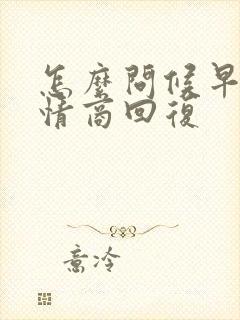 怎麼問候早
情商回復
意冷